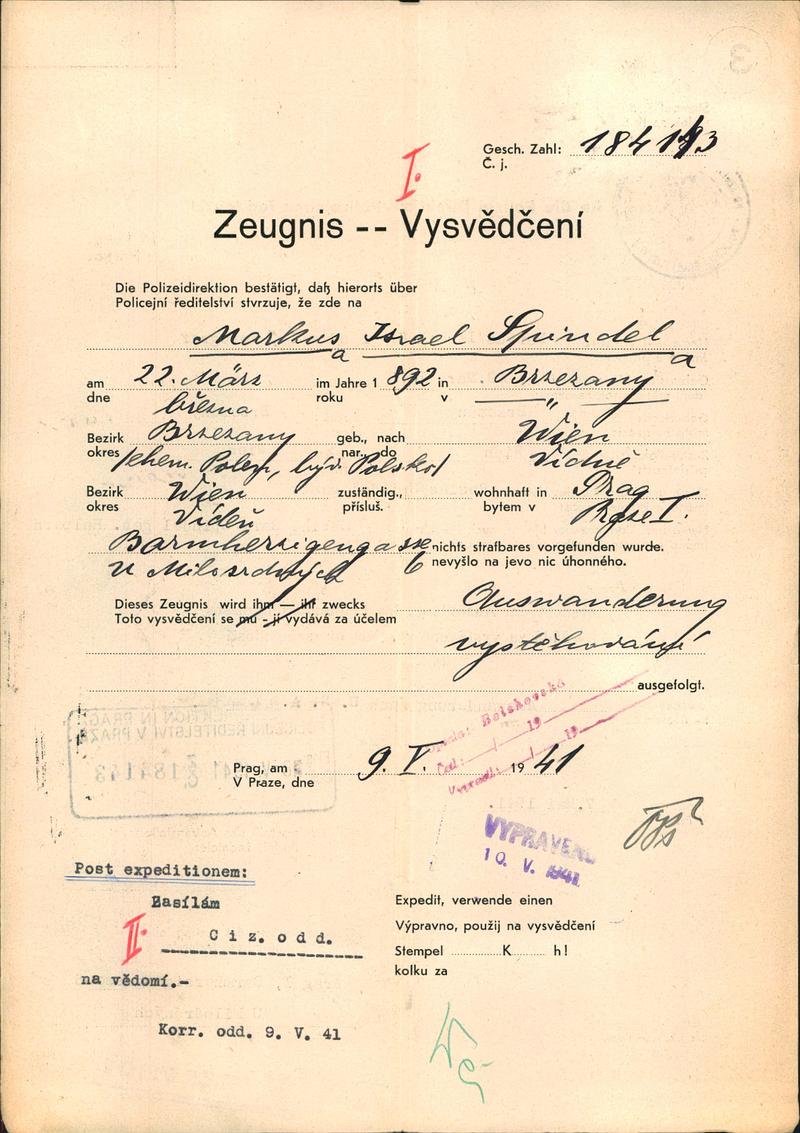 Gesch. Zahl: 184143
Č. j.
I.
Zeugnis -- Vysvědčení
Die Polizeidirektion bestätigt, daß hierorts über
Policejní ředitelství stvrzuje, že zde na
Markusa Israel Spindela
am 22. März im Jahre 1 892 in Brzezany
dne března roku v "
Bezirk Brzezany geb., nach Wien
okres /ehem. Polen, býv. Polsko/ nar., do Vídně
Bezirk Wien zuständig., wohnhaft in Prag
okres Vídeň přísluš. bytem v Praze I.
Barmherzigengasse nichts strafbares vorgefunden wurde.
U Milosrdných 6 nevyšlo na jevo nic úhonného.
Dieses Zeugnis wird ihm — ihr zwecks Auswanderung
Toto vysvědčení se mu - jí vydává za účelem
vystěhování
ausgefolgt.
Prag, am 9. V. 19 41
V Praze, dne
VYPRAVENO
10. V. 1941
Post expeditionem:
Zasílám
II.
Ciz. odd.
na vědomí.-
Korr. odd. 9. V. 41
Expedit, verwende einen
Výpravno, použij na vysvědčení
Stempel K h!
kolku za